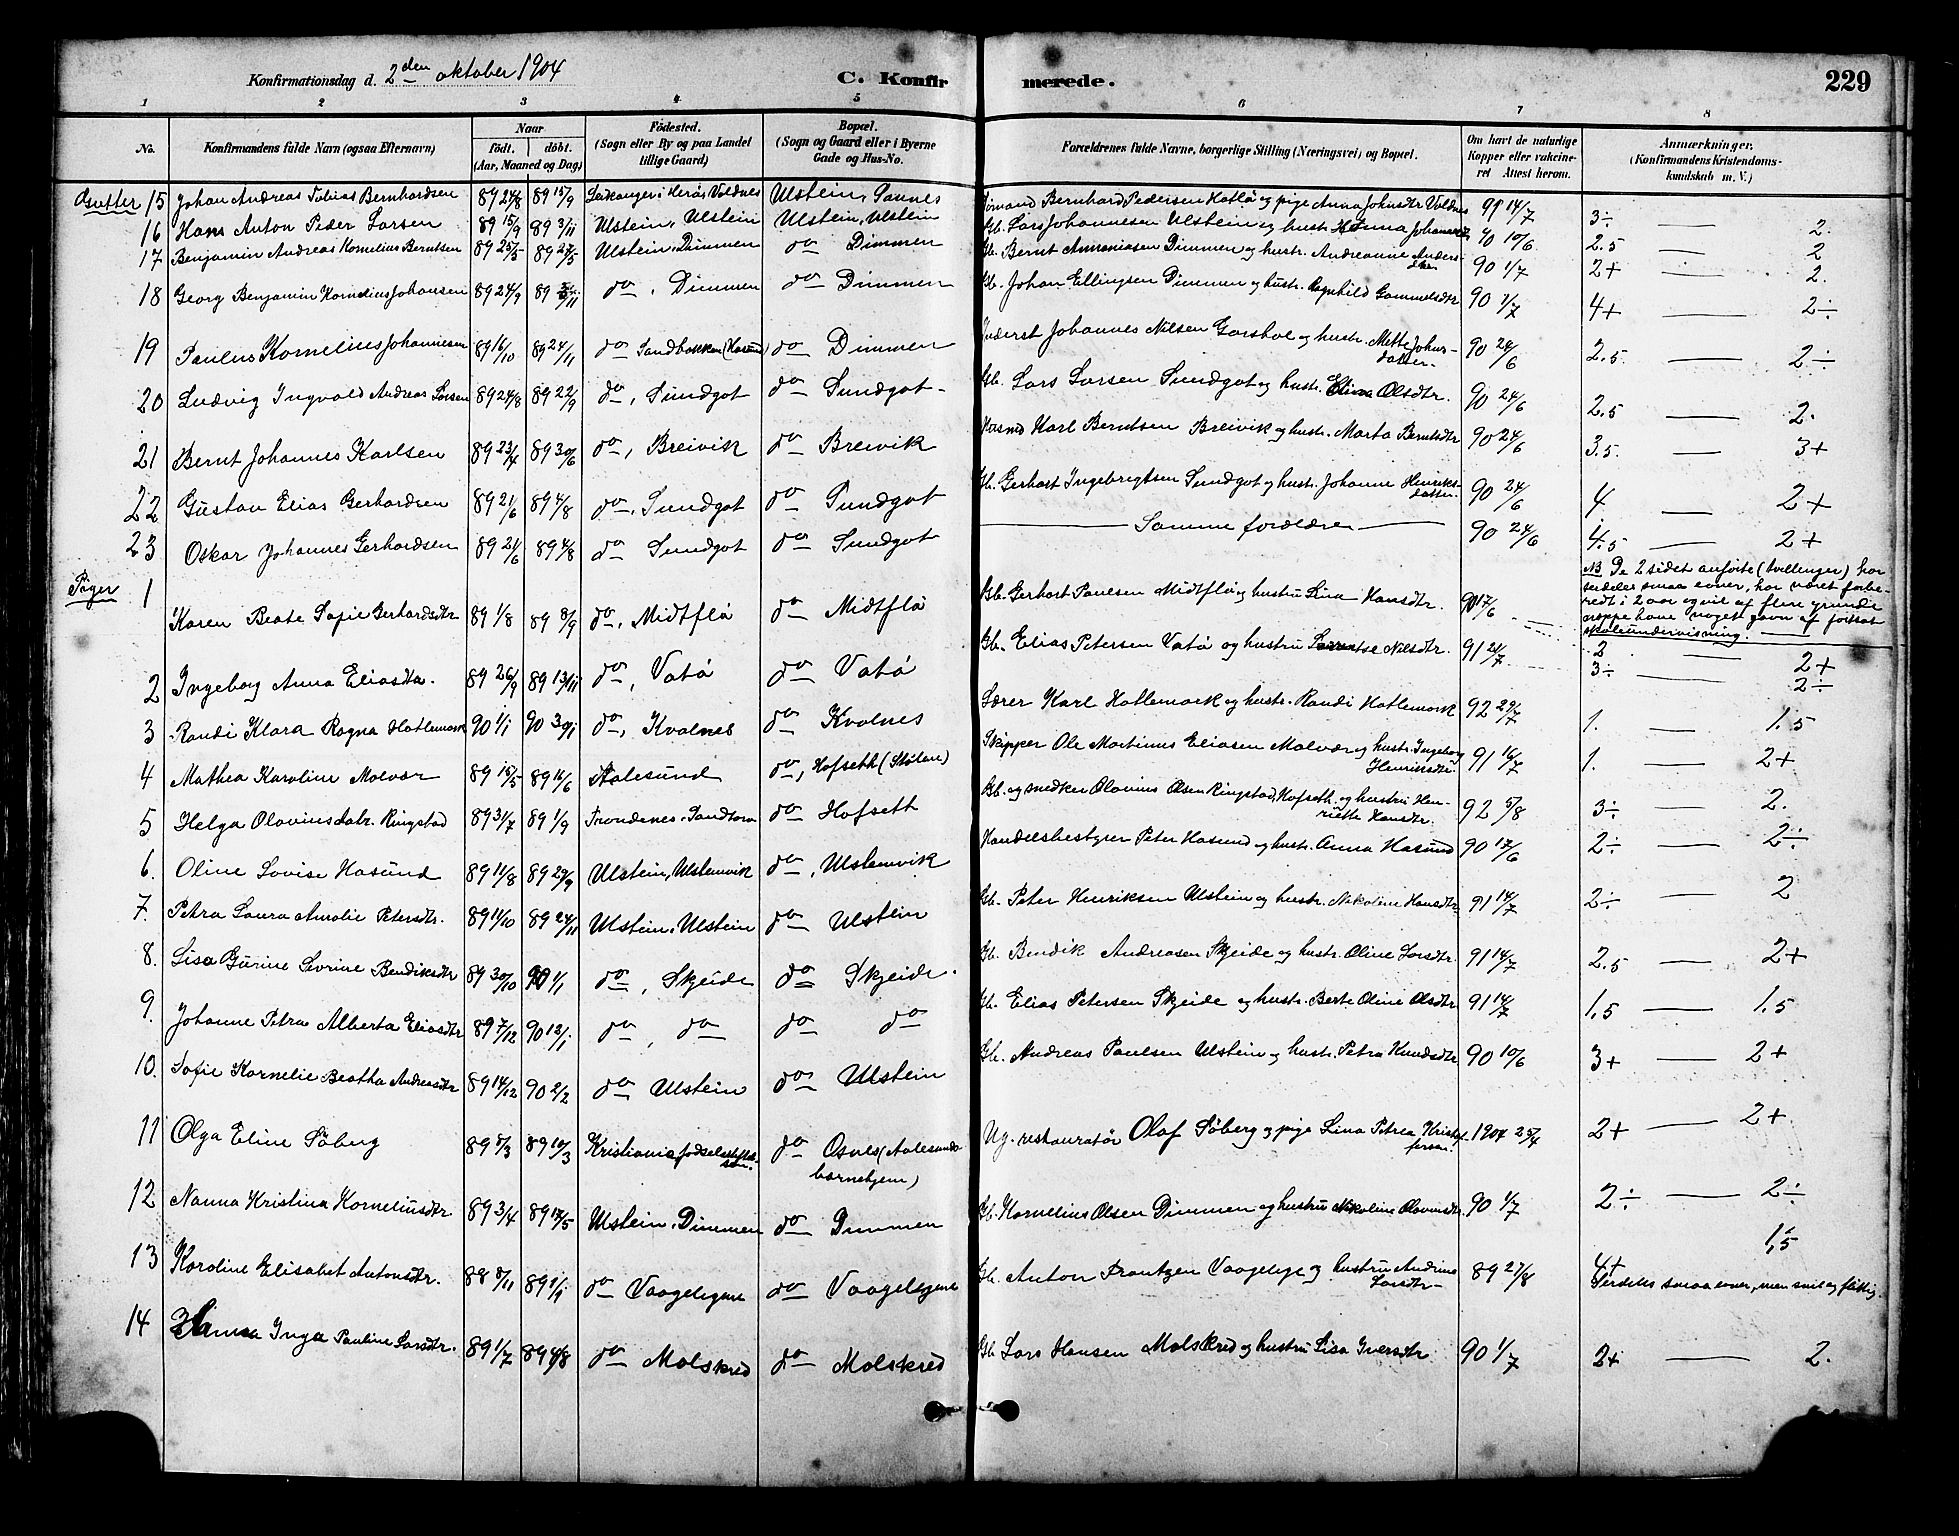 Konfirmationsdag d. 2den oktober 1904
C. Konfirmerede.
229
1 2 3 4 5 6 7 8
No.
Konfirmandens fulde Navn (ogsaa Efternavn)
Naar
født. døbt.
(Aar, Maaned og Dag)
Fødested.
(Sogn eller By og paa Landet
tillige Gaard)
Bopæl.
(Sogn og Gaard eller i Byerne
Gade og Hus-No.
Forældrenes fulde Navne, borgerlige Stilling (Næringsvei) og Bopæl.
Om havt de naturlige
Kopper eller vakcineret
Attest herom.
Anmærkninger.
(Konfirmandens Kristendomskundskab
m. V.)
Gutter 15 Johan Andreas Tobias Bernhardsen 89 24/8 89 15/9 Leikanger i Herø, Voldnes Ulstein, Saunes Bernhard Pedersen Hatlø og pige Anna Johnsdtr Voldnes 99 14/7 3÷ — 2.
16 Hans Anton Peder Larsen 89 15/9 89 3/11 Ulstein, Ulstein Ulstein, Ulstein Gb. Lars Johannesen Ulstein og hustr. Johansdtr 90 10/6 2.5 — 2
17 Benjamin Andreas Kornelius Berntsen 89 25/5 89 27/5 Ulstein, Dimmen do Dimmen Gb. Bernt Ananiasen Dimmen og hustr. Andreanne Andersdtr. 90 1/7 2+ — 2.
18 Georg Benjamin Kornelius Johansen 89 24/9 89 3/11 do, Dimmen do Dimmen Gb. Johan Ellingsen Dimmen og hustr. Ragnhild Gammelsdtr 90 1/7 4+ — 2÷
19 Paulus Kornelius Johannesen 89 16/10 89 24/11 do Sandbakken (Hasund) do Dimmen Inderst Johannes Nilsen Garshol og hustr. Mette Johnsdatter. 90 24/6 2.5 — 2÷
20 Ludvig Ingvald Andreas Larsen 89 24/8 89 22/9 do, Sundgot do Sundgot Gb. Lars Larsen Sundgot og hustr. Elina Olsdtr. 90 24/6 2.5 — 2.
21 Bernt Johannes Karlsen 89 23/4 89 30/6 do, Breivik do Breivik Karl Berntsen Breivik og hustr. Marta Berntsdtr 90 24/6 3.5 — 3+
22 Gustav Elias Gerhardsen 89 21/6 89 4/8 do, Sundgot do Sundgot Gb. Gerhart Ingebrigtsen Sundgot og hustr. Johanne Henriksdatter. 90 24/6 4 — 2+
23 Oskar Johannes Gerhardsen 89 21/6 89 4/8 do Sundgot do Sundgot — Samme forældre — 90 24/6 4.5 — 2+
NB De 2 sidst anførte (tvillinger) har
særdeles smaa evner, har været forberedt
i 2 aar og vil af flere grunde
neppe have noget gavn af fortsat
skoleundervisning.
Piger 1 Karen Beate Sofie Gerhardsdtr 89 1/8 89 8/9 do, Midtflø do Midtflø Gb. Gerhart Paulsen Midtflø og hustru Lina Hansdtr. 90 17/6 2 — 2+
2 Ingeborg Anna Eliasdtr. 89 26/9 89 13/11 do, Vatø do Vatø Gb. Elias Petersen Vatø og hustru Laurentse Nilsdtr. 91 24/7 3÷ — 2÷
3 Randi Klara Ragna Hatlemark 90 1/1 90 30/1 do, Kvalnes do Kvalnes Lærer Karl Hatlemark og hustr. Randi Hatlemark 92 29/7 1. — 1.5
4 Mathea Karoline Molvær 89 15/5 89 16/6 Aalesund do, Hofseth (Støten) Skipper Ole Martinus Eliasen Molvær og hustr. Ingeborg Henriksdtr. 91 16/7 1. — 2+
5 Helga Olavinusdatr. Ringstad 89 3/7 89 1/9 Trondenes, Sandtorv do Hofseth Gb. og snedker Olavinus Olsen Ringstad, Hofseth og hustru Henriette Hansdtr. 92 5/8 3÷ — 2.
6. Oline Lovise Hasund 89 11/8 89 29/9 Ulstein, Ulsteinvik do, Ulsteinvik Handelsbestyrer Peter Hasund og hustr. Anna Hasund 90 17/6 2÷ — 2÷
7. Petra Laura Amalie Petersdtr. 89 11/10 89 24/11 Ulstein, Ulstein do Ulstein Gb. Peter Henriksen Ulstein og hustr. Nikoline Hansdtr. 91 14/7 2÷ — 2
8. Lisa Gurine Severine Bendiksdtr 89 30/10 90 1/1 do, Skjeide do Skjeide. Gb. Bendik Andreasen Skjeide og hustr. Oline Larsdtr. 91 14/7 2.5 — 2+
9. Johanne Petra Alberta Eliasdtr 89 7/12 90 12/1 do, do do do Gb. Elias Petersen Skjeide og hustr. Berte Oline Olsdtr 91 14/7 1,5 — 1,5
10. Sofie Kornelie Beatha Andreasdtr 89 14/12 90 2/2 do Ulstein do Ulstein Gb. Andreas Paulsen Ulstein og hustr. Petra Knudsdtr 90 10/6 3+ — 2+
11 Olga Eline Søberg 89 5/3 89 10/3 Kristiania fødselsstiftelsen. do Osnes (Aalesunds barnehjem) Ug. restauratør Olaf Søberg og pige Lina Petrea Kristoffersen. 1904 25/4 2+ — 2+
12 Nanna Kristina Korneliusdtr 89 3/4 89 12/5 Ulstein, Dimmen do Dimmen Gb. Kornelius Olsen Dimmen og hustru Nikoline Olavusdtr. 90 1/7 2÷ — 2÷
13 Karoline Elisabet Antonsdtr. 88 8/11 89 1/1 do Vaagelegene do Vaagelegene Gb. Anton Frantzen Vaagelege og hustru Andrine Larsdtr 89 27/8 4+ 1,5
Særdeles smaa evner, men snil og flittig.
14 Inga Pauline Larsdtr. 89 1/7 89 4/8 do Molskred do Molskred Gb. Lars Hansen Molskred og hustru Lisa Iversdtr 90 1/7 2+ — 2.